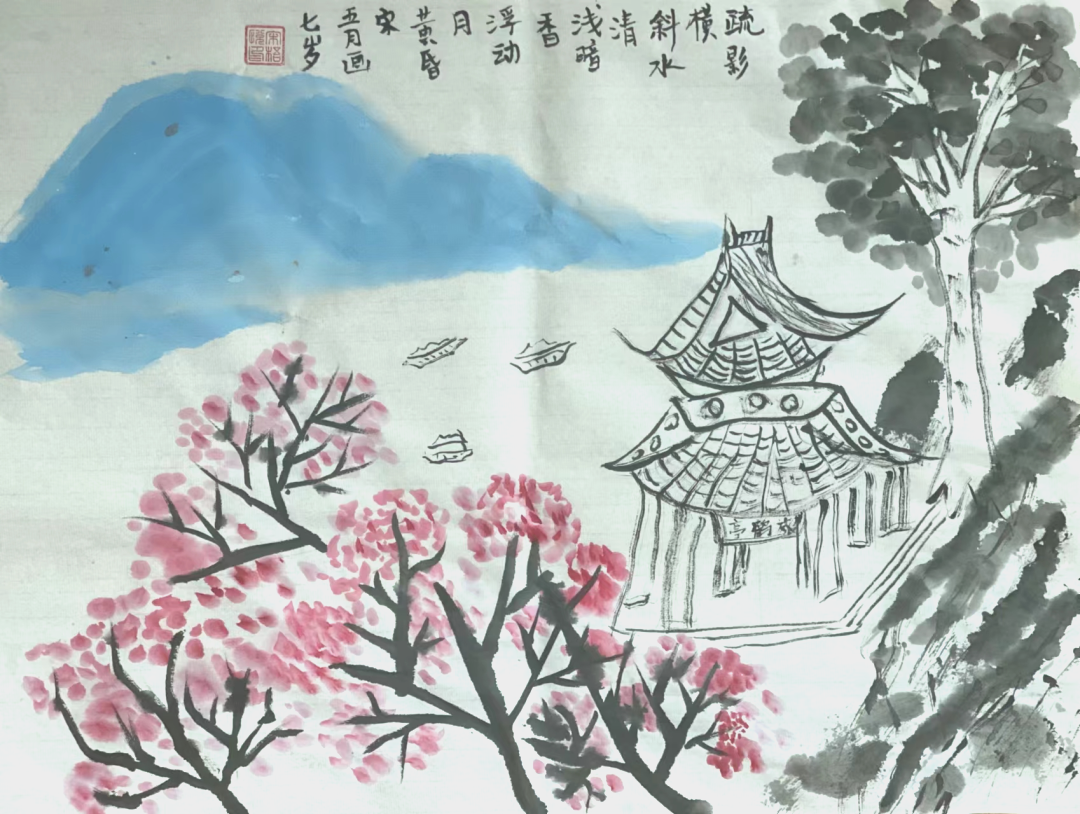 疏影
横
斜水
清
浅暗
香
浮动
月
黄昏
宋
五月画
七岁
放鹤亭